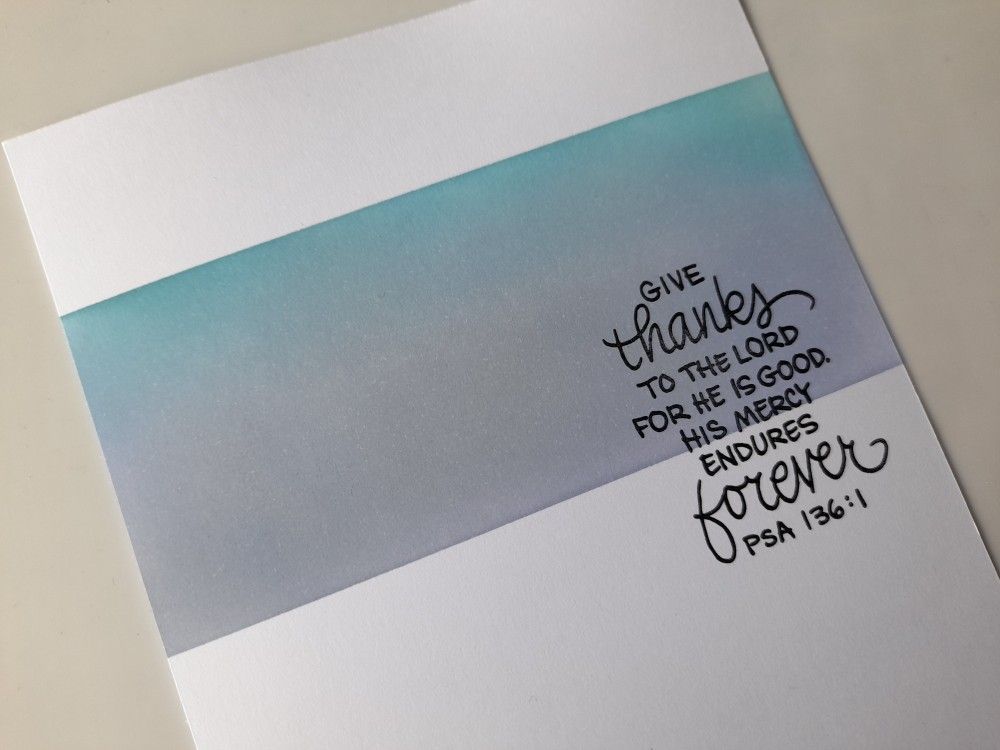 GIVE
thanks
TO THE LORD
FOR HE IS GOOD.
HIS MERCY
ENDURES
forever
PSA 136:1